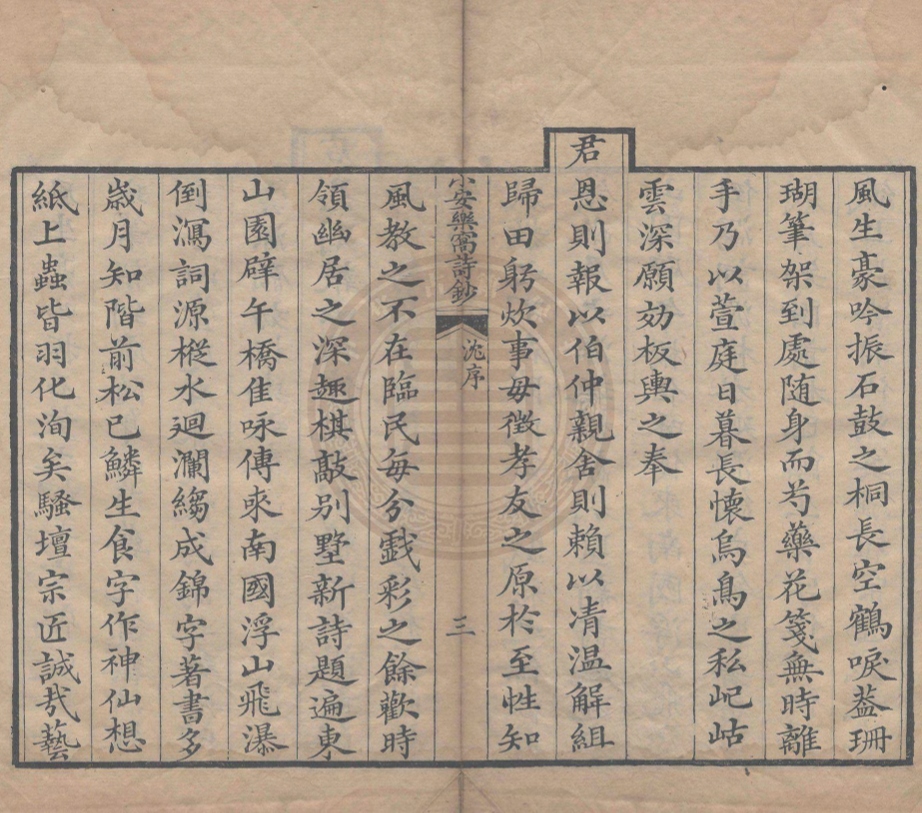 風生豪吟振石鼓之桐長空鶴唳葢珊
瑚筆架到處随身而芍藥花箋無時離
手乃以萱庭日暮長懷烏鳥之私屺岵
雲深願効板輿之奉
君恩則報以伯仲親舍則賴以凊温解組
歸田躬炊事毋徵孝友之原於至性知
小安樂窩詩鈔
沈序
三
風教之不在臨民每分戱彩之餘歡時
領幽居之深趣棋敲别墅新詩題遍東
山園辟午橋隹咏傳來南國浮山飛瀑
倒瀉詞源樅水廻瀾縐成錦字著書多
歲月知階前松已鱗生食字作神仙想
紙上蟲皆羽化洵矣騷壇宗匠誠㢤藝